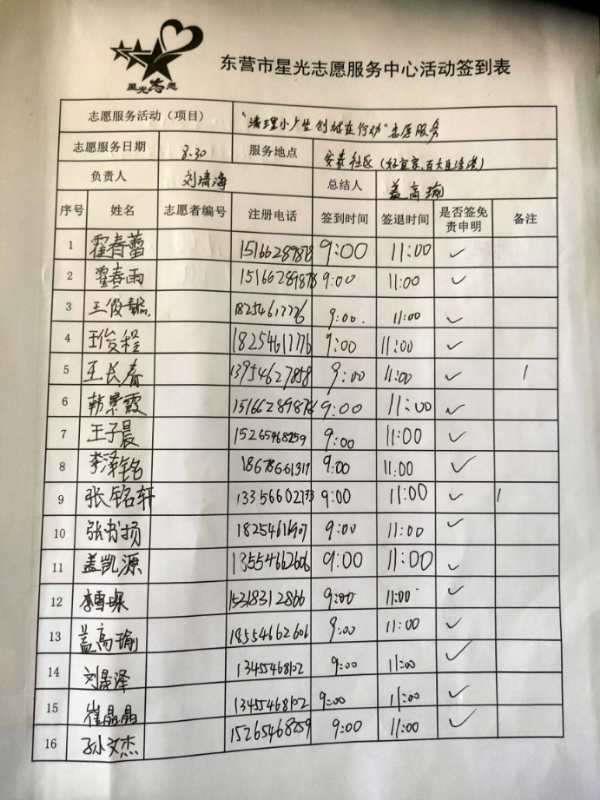 星光志愿
东营市星光志愿服务中心活动签到表
志愿服务活动（项目） "清理小广告 创城在行动"志愿服务
志愿服务日期 8.30 服务地点 安泰社区
负责人 刘清海 总结人 盖高瑜
序号 姓名 志愿者编号 注册电话 签到时间 签退时间 是否签免责申明 备注
1 霍春蕾 15166289878 9:00 11:00 ✓
2 霍春雨 15166289878 9:00 11:00 ✓
3 王俊懿 18254617776 9:00 11:00 ✓
4 王俊程 18254617776 9:00 11:00 ✓
5 王长春 13954627858 9:00 11:00 ✓ 1
6 韩景霞 15166289878 9:00 11:00 ✓
7 王子晨 15265468259 9:00 11:00 ✓
8 李泽铭 9:00 11:00 ✓
9 张铭轩 9:00 11:00 ✓ 1
10 张书扬 9:00 11:00 ✓
11 盖凯源 13554662606 9:00 11:00 ✓
12 9:00 11:00 ✓
13 盖高瑜 18554662606 9:00 11:00 ✓
14 刘晟泽 13455468102 9:00 11:00 ✓
15 崔晶晶 13455468102 9:00 11:00 ✓
16 孙文杰 15265468259 9:00 11:00 ✓